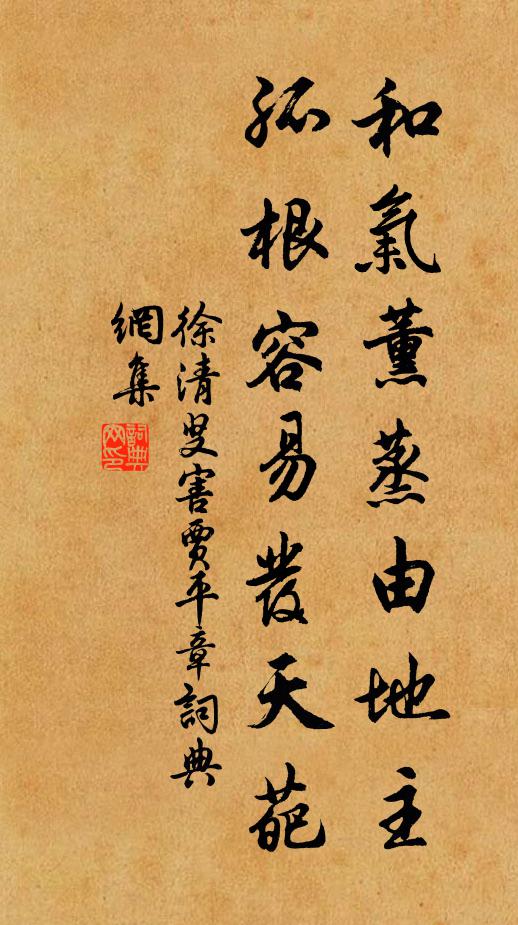 和氣薰蒸由地主
孤根容易發天葩
徐清叟害賈平章詞典
網集
詞典
网印